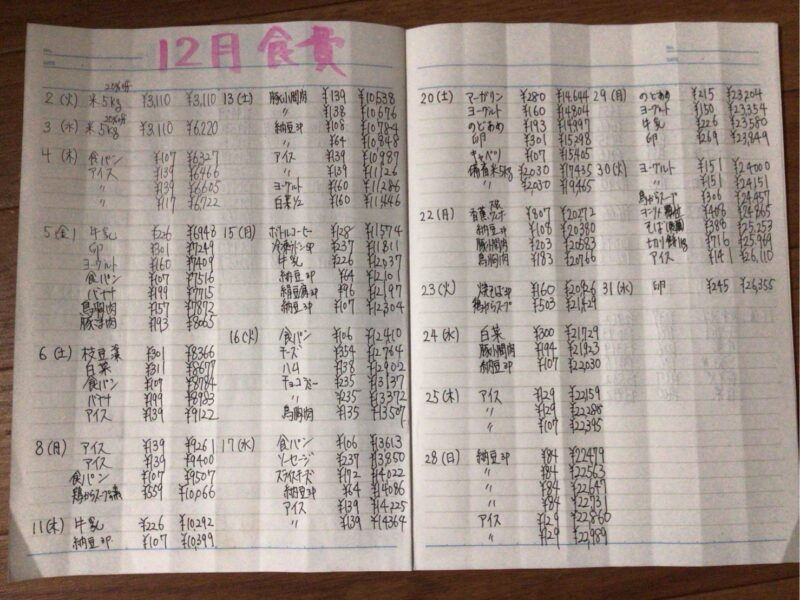 12月 食費
2(火) 米5kg ¥3,110 ¥3,110
3(水) 米5kg ¥3,110 ¥6,220
4(木) 食パン ¥107 ¥6327
アイス ¥139 ¥6466
〃 ¥139 ¥6605
〃 ¥117 ¥6,722
5(金) 牛乳 ¥226 ¥6948
卵 ¥301 ¥7249
ヨーグルト ¥160 ¥7409
食パン ¥107 ¥7516
バナナ ¥199 ¥7715
鳥胸肉 ¥157 ¥7872
¥193 ¥8065
6(土) 枝豆 ¥301 ¥8366
白菜 ¥311 ¥8677
食パン ¥107 ¥8784
バナナ ¥199 ¥8983
アイス ¥139 ¥9122
8(月) アイス ¥139 ¥9261
アイス ¥139 ¥9400
食パン ¥107 ¥9507
鶏がらスープ ¥559 ¥10,066
11(木) 牛乳 ¥226 ¥10,292
納豆3P ¥107 ¥10,399
13(土) 豚小間肉 ¥139 ¥10538
〃 ¥138 ¥10676
納豆3P ¥108 ¥10784
〃 ¥64 ¥10848
アイス ¥139 ¥10987
〃 ¥139 ¥11126
ヨーグルト ¥160 ¥11286
白菜1/2 ¥160 ¥11446
15(月) ボトルコーヒー ¥128 ¥11574
¥237 ¥11811
牛乳 ¥226 ¥12037
納豆3P ¥64 ¥12101
絹豆腐3P ¥96 ¥12197
納豆3P ¥107 ¥12304
16(火) 食パン ¥106 ¥12410
チーズ ¥354 ¥12764
ハム ¥138 ¥12902
チョコ ¥235 ¥13137
〃 ¥235 ¥13372
鳥胸肉 ¥135 ¥13507
17(水) 食パン ¥106 ¥13613
ソーセージ ¥237 ¥13850
スライスチーズ ¥172 ¥14022
納豆3P ¥64 ¥14086
アイス ¥139 ¥14225
〃 ¥139 ¥14364
20(土) マーガリン ¥280 ¥14644
ヨーグルト ¥160 ¥14804
のどあめ ¥193 ¥14997
卵 ¥301 ¥15298
キャベツ ¥107 ¥15405
備蓄米5kg ¥2030 ¥17435
〃 ¥2030 ¥19465
22(月) ¥807 ¥20272
納豆3P ¥108 ¥20380
豚小間肉 ¥203 ¥20583
鳥胸肉 ¥183 ¥20766
23(火) 焼そば3P ¥160 ¥20926
鶏がらスープ ¥503 ¥21429
24(水) 白菜 ¥300 ¥21729
豚小間肉 ¥194 ¥21923
納豆3P ¥107 ¥22030
25(木) アイス ¥129 ¥22159
〃 ¥129 ¥22288
〃 ¥107 ¥22395
28(日) 納豆3P ¥84 ¥22479
〃 ¥84 ¥22563
〃 ¥84 ¥22647
〃 ¥84 ¥22731
アイス ¥129 ¥22,860
〃 ¥129 ¥22,989
29(月) のどあめ ¥215 ¥23204
ヨーグルト ¥150 ¥23354
牛乳 ¥226 ¥23580
卵 ¥269 ¥23,849
30(火) ヨーグルト ¥151 ¥24000
〃 ¥151 ¥24151
鳥がらスープ ¥306 ¥24457
¥408 ¥24865
そば ¥388 ¥25,253
切り餅1kg ¥716 ¥25,969
アイス ¥141 ¥26,110
31(水) 卵 ¥245 ¥26,355